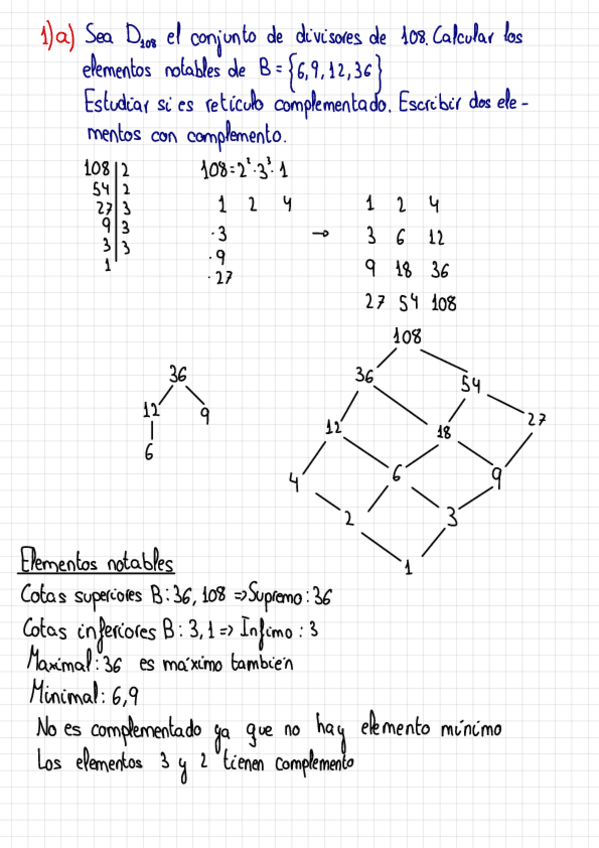 1)a) Sea D₁₀₈ el conjunto de divisores de 108. Calcular los
elementos notables de B = {6,9,12,36}
Estudiar si es retículo complementado. Escribir dos ele-
mentos con complemento.
108 | 2
54 | 2
27 | 3
9 | 3
3 | 3
1
108 = 2² · 3³ · 1
1 2 4
·3
·9
·27
→
1 2 4
3 6 12
9 18 36
27 54 108
36
12 9
6
108
36 54
12 18 27
4 6 9
2 3
1
Elementos notables
Cotas superiores B: 36, 108 ⇒ Supremo: 36
Cotas inferiores B: 3, 1 ⇒ Infimo: 3
Maximal: 36 es máximo también
Minimal: 6,9
No es complementado ya que no hay elemento mínimo
Los elementos 3 y 2 tienen complemento